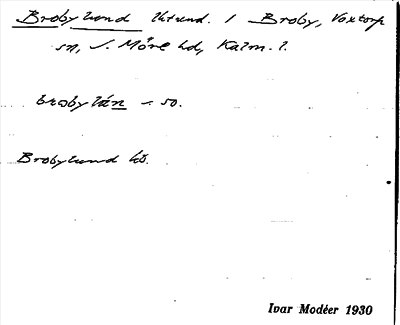 Brobylund Utrund. / Broby, Voxtorp
sn, S. Möre hd, Kalm. l.
brobylún – so.
Brobylund kd.
Ivar Modéer 1930